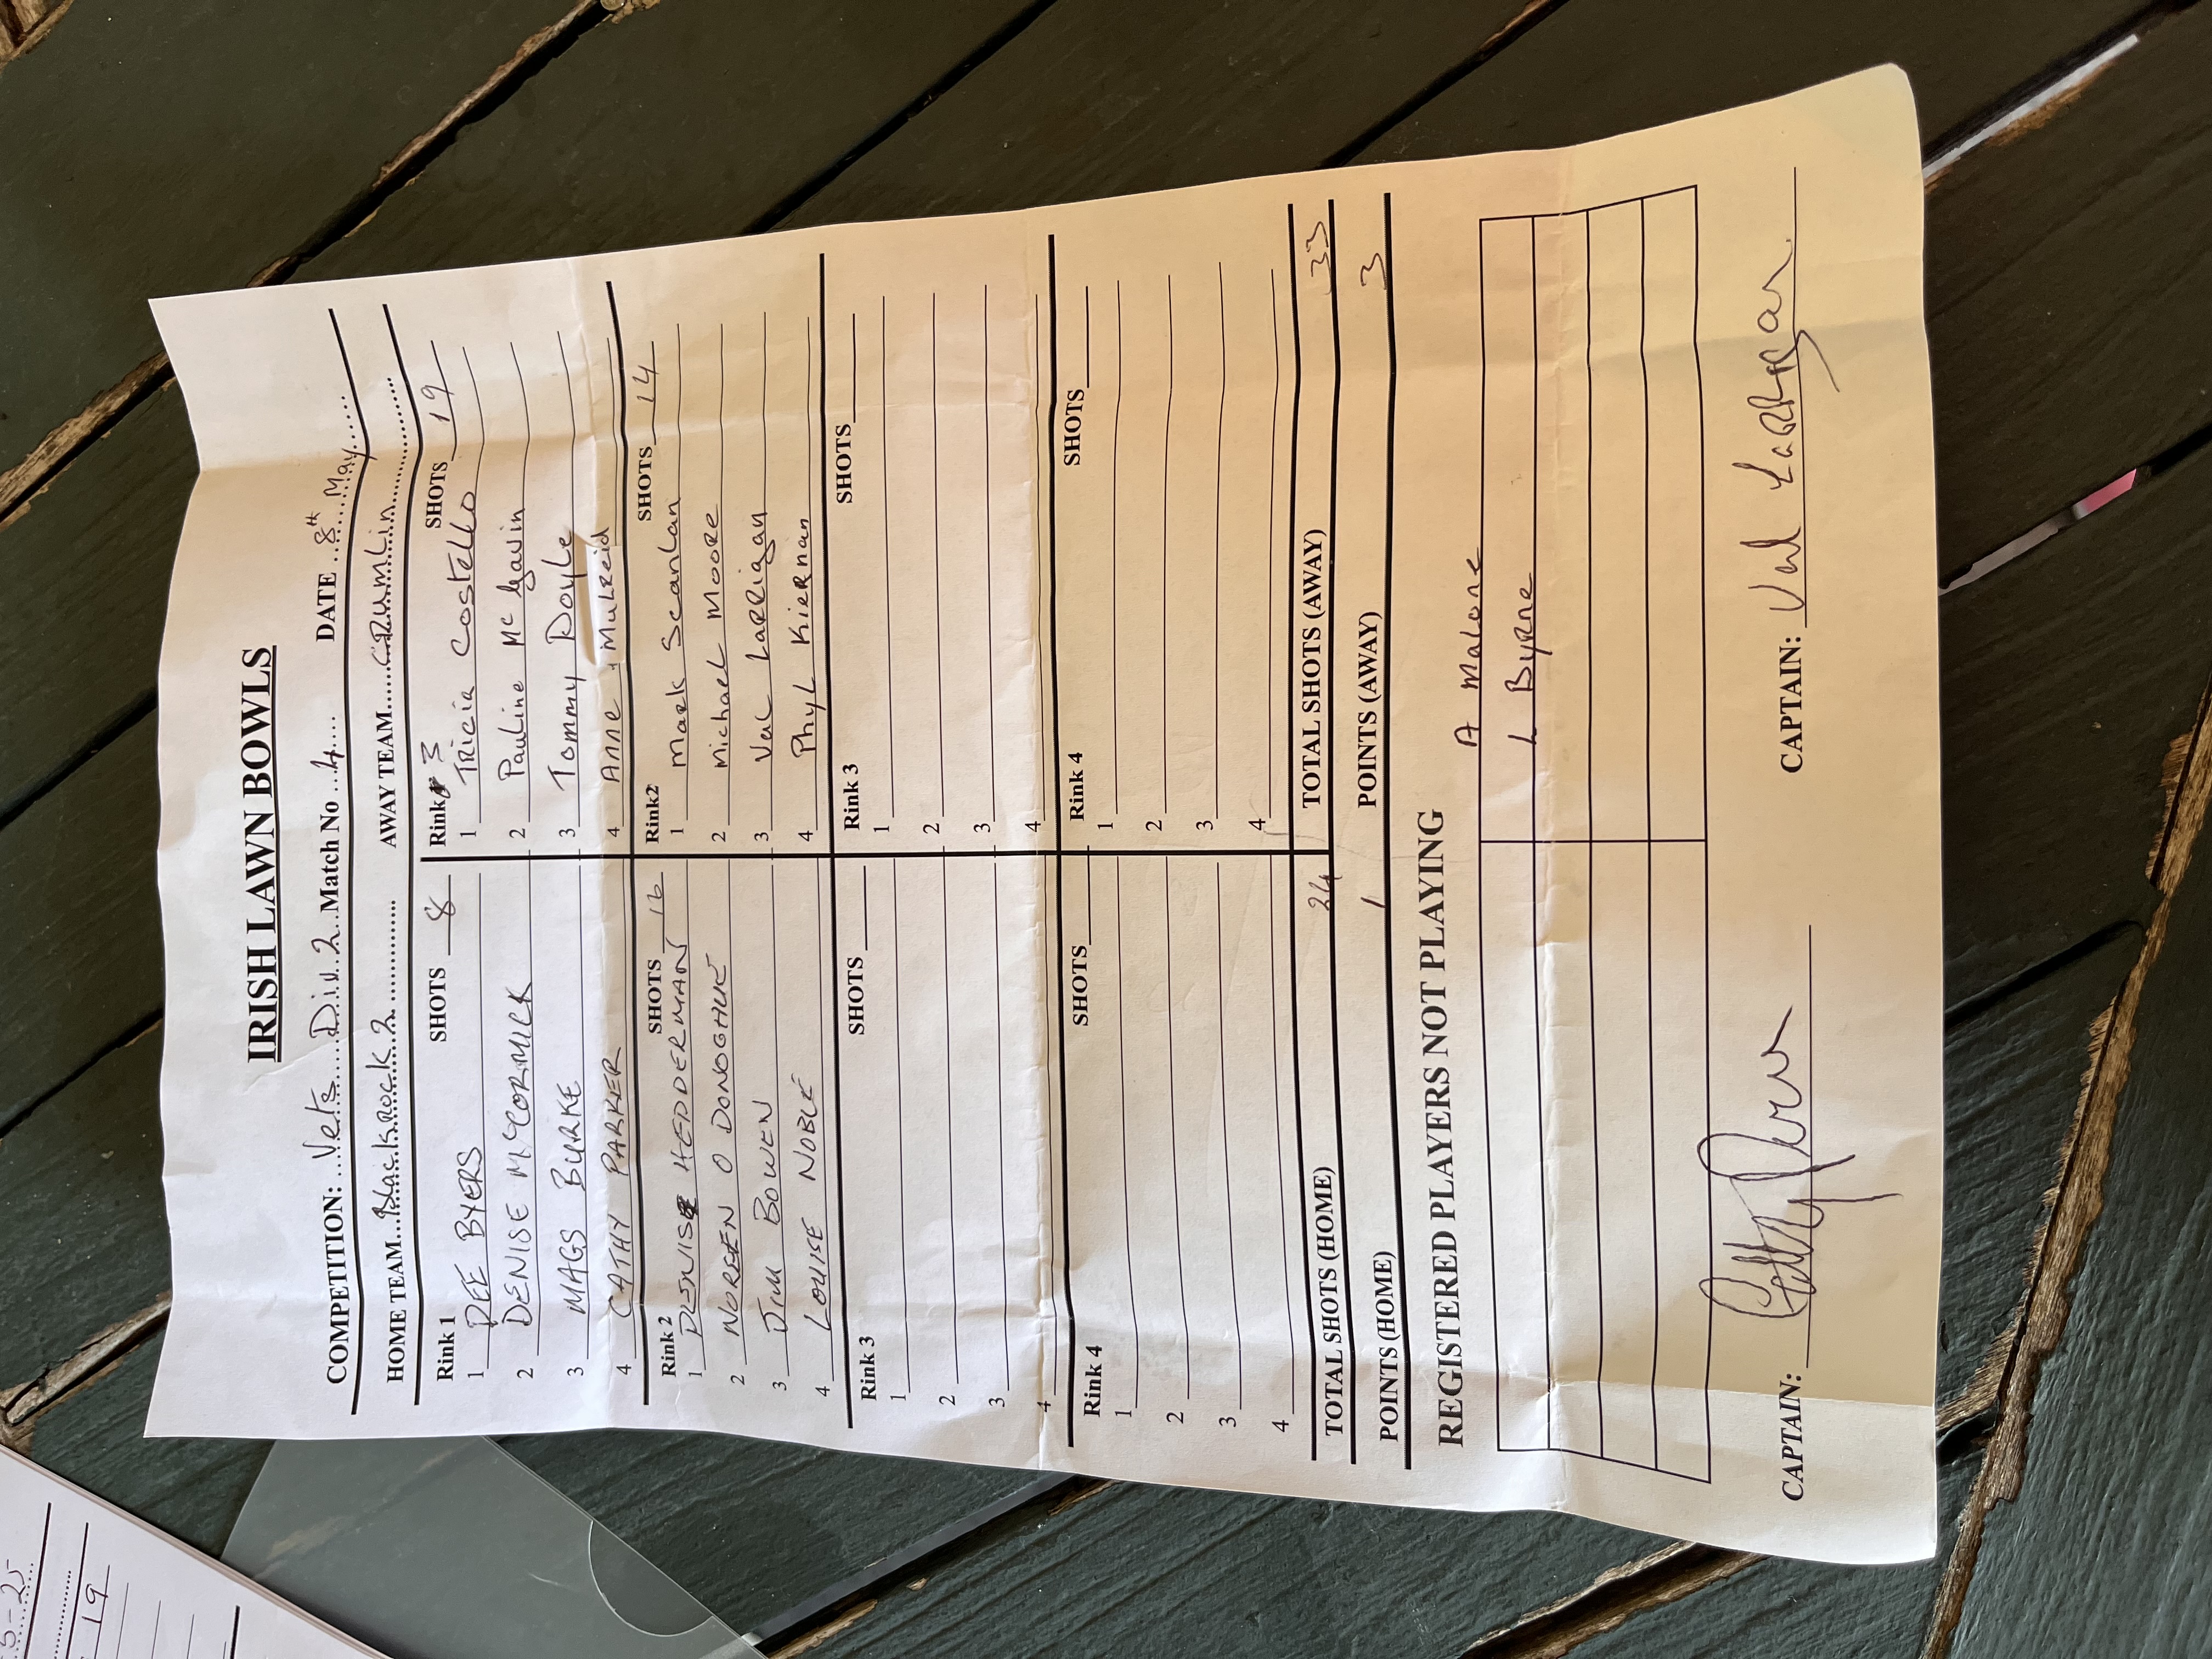 IRISH LAWN BOWLS
COMPETITION: Vets Div 2 Match No 4 DATE 8th May
HOME TEAM Blackrock 2 AWAY TEAM CRUMLIN
Rink 1 SHOTS 8 Rink 3 SHOTS 19
1 DEE BYERS 1 TRicia Costello
2 DENISE McCORMICK 2 Pauline Mc Gavin
3 MAGS BURKE 3 Tommy Doyle
4 CATHY PARKER 4 Anne Mulreid
Rink 2 SHOTS 16 Rink2 SHOTS 14
1 DENISE HEDDERMAN 1 Mark Scanlan
2 NOREEN O DONOGHUE 2 Michael Moore
3 JIM BOWEN 3 Val Larrigan
4 LOUISE NOBLE 4 Phyl Kiernan
Rink 3 SHOTS Rink 3 SHOTS
1 1
2 2
3 3
4 4
Rink 4 SHOTS Rink 4 SHOTS
1 1
2 2
3 3
4 4
TOTAL SHOTS (HOME) 24 TOTAL SHOTS (AWAY) 33
POINTS (HOME) 1 POINTS (AWAY) 3
REGISTERED PLAYERS NOT PLAYING
A Malone
L Byrne
CAPTAIN: CAPTAIN: Val Larrigan
5-25
19